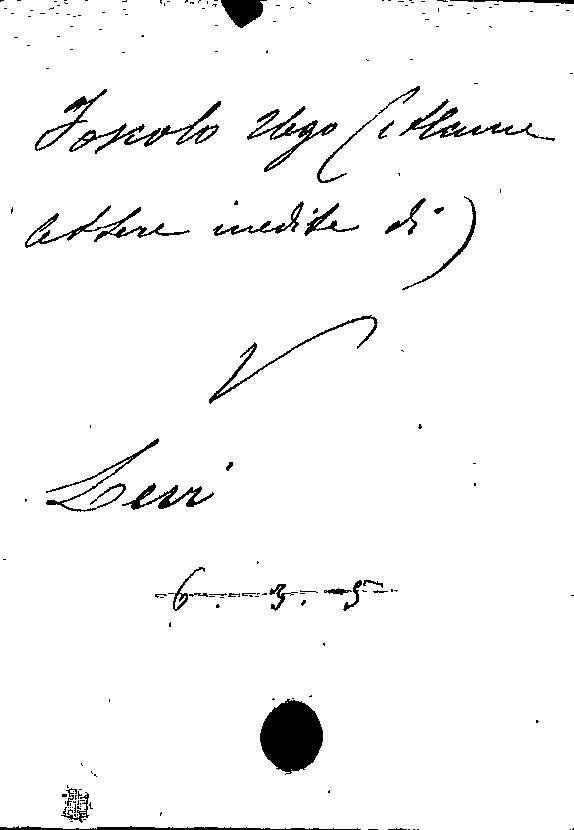 Foscolo Ugo (Alcune
lettere inedite di)
V
Levi
6. 3. 5